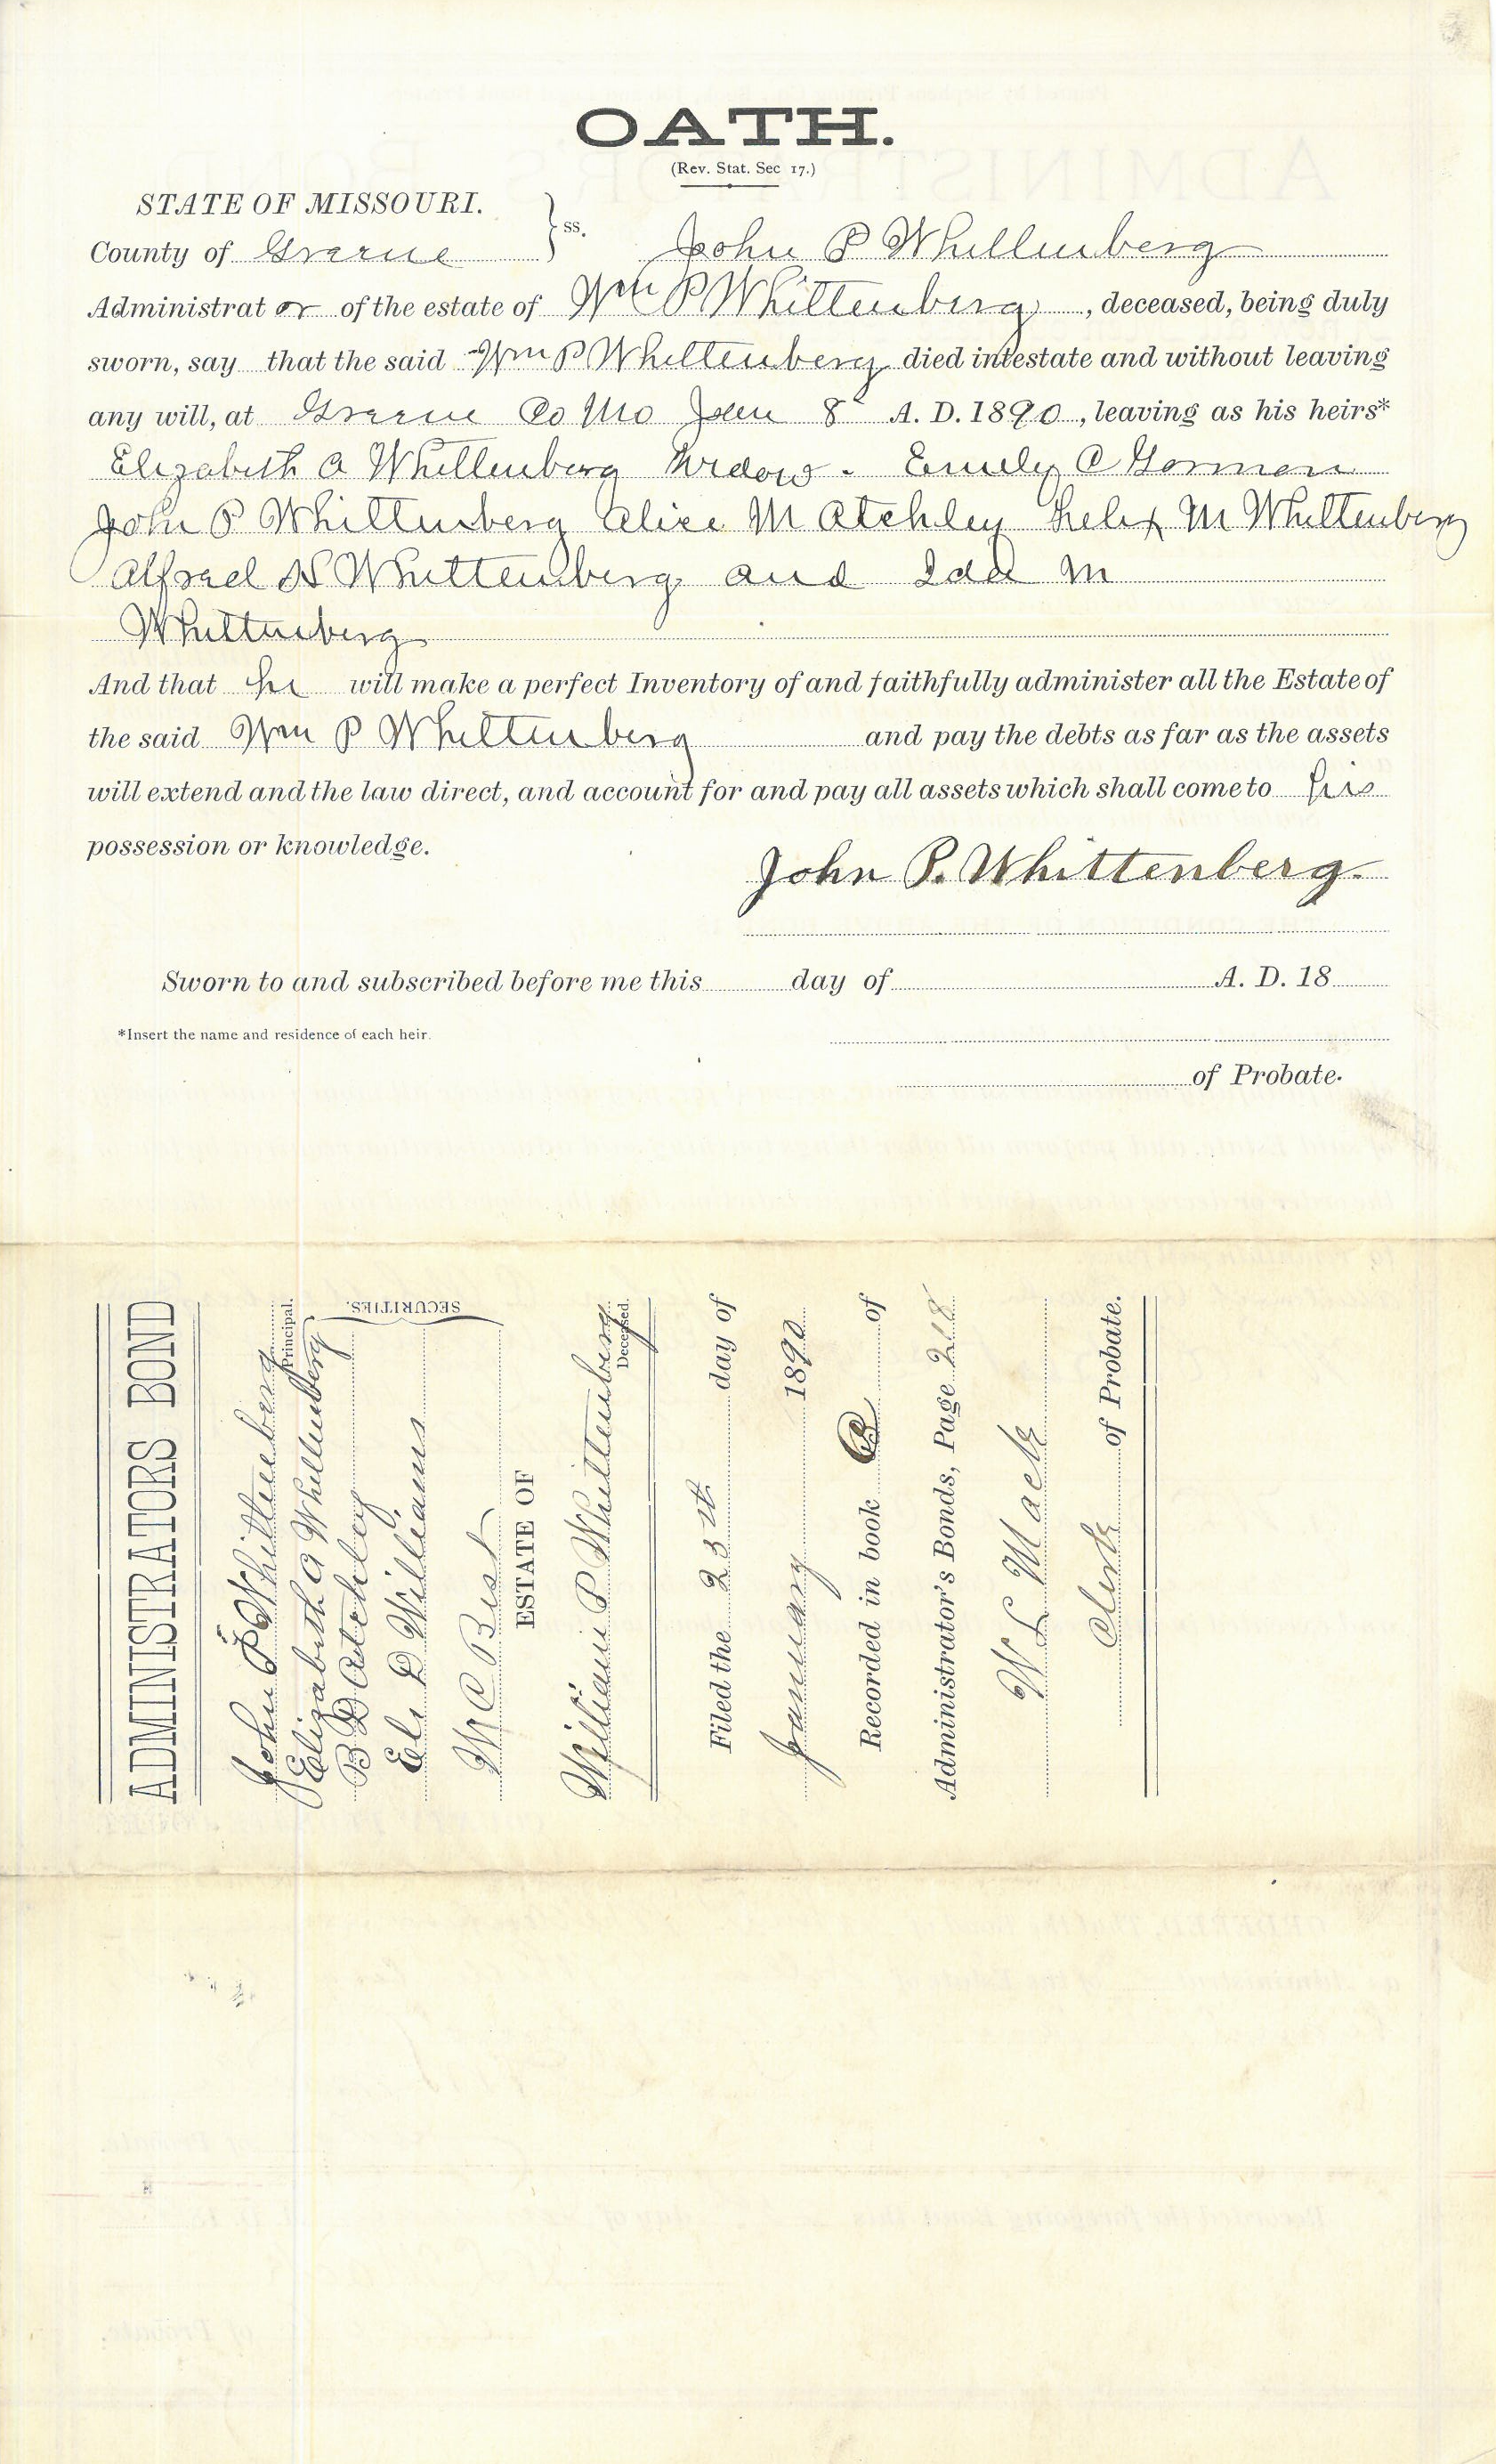 OATH.
(Rev. Stat. Sec 17.)
STATE OF MISSOURI.
County of Greene } ss. John P Whittenberg
Administrat or of the estate of Wm P Whittenberg, deceased, being duly
sworn, say that the said Wm P Whittenberg died intestate and without leaving
any will, at Greene Co Mo Jan 8 A. D. 1890, leaving as his heirs*
Elizabeth A Whittenberg Widow. Emily C Gorman
John P Whittenberg Alice M Atchley Felix M Whittenberg
Alfred N Whittenberg and Ida M
Whittenberg
And that he will make a perfect Inventory of and faithfully administer all the Estate of
the said Wm P Whittenberg and pay the debts as far as the assets
will extend and the law direct, and account for and pay all assets which shall come to his
possession or knowledge.
John P. Whittenberg.
Sworn to and subscribed before me this day of A. D. 18
*Insert the name and residence of each heir.
of Probate.
ADMINISTRATORS BOND
John P Whittenberg
Principal.
Elizabeth A Whittenberg
B D Atchley
Eli D Williams
W C Best
SECURITIES.
ESTATE OF
William P Whittenberg
Deceased.
Filed the 23rd day of
January 1890
Recorded in book B of
Administrator's Bonds, Page 218
W L Mack
Clerk of Probate.